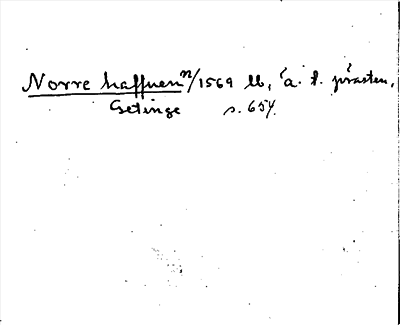 Norre haffuen n/1569 lb, å. t. prästen,
Getinge s. 654.